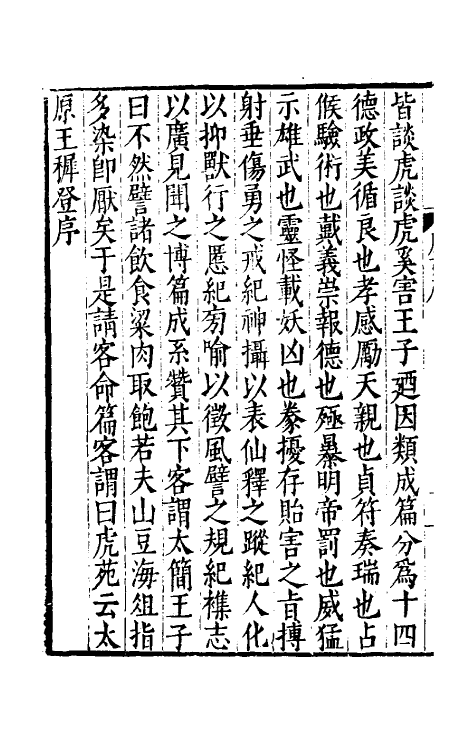 皆談虎談虎奚害王子廼因類成篇分爲十四
德政美循良也孝感勵天親也貞符奏瑞也占
候驗術也戴義崇報德也殛暴明帝罰也威猛
示雄武也靈怪載妖凶也豢擾存貽害之旨搏
射垂傷勇之戒紀神攝以表仙釋之蹤紀人化
以抑獸行之慝紀旁喻以徵風譬之規紀襍志
以廣見聞之博篇成系贊其下客謂太簡王子
曰不然譬諸飲食粱肉取飽若夫山豆海俎指
多染卽厭矣于是請客命篇客謂曰虎苑云太
原王穉登序